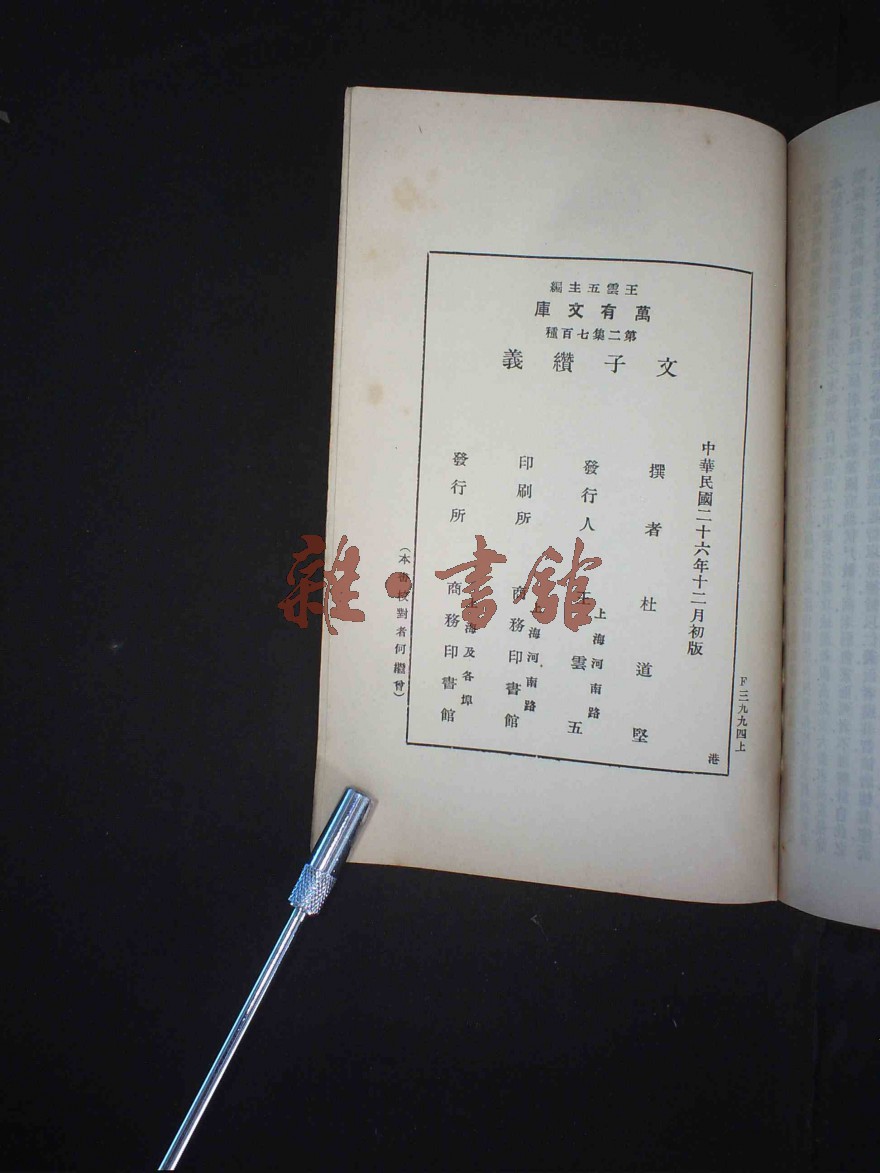 王雲五主編
萬有文庫
第二集七百種
文子纘義
中華民國二十六年十二月初版
F三九九四上
港
撰者 杜道堅
發行人 王雲五
上海河南路
印刷所 商務印書館
上海河南路
發行所 商務印書館
上海及各埠
(本書校對者何繼曾)
雜·書館